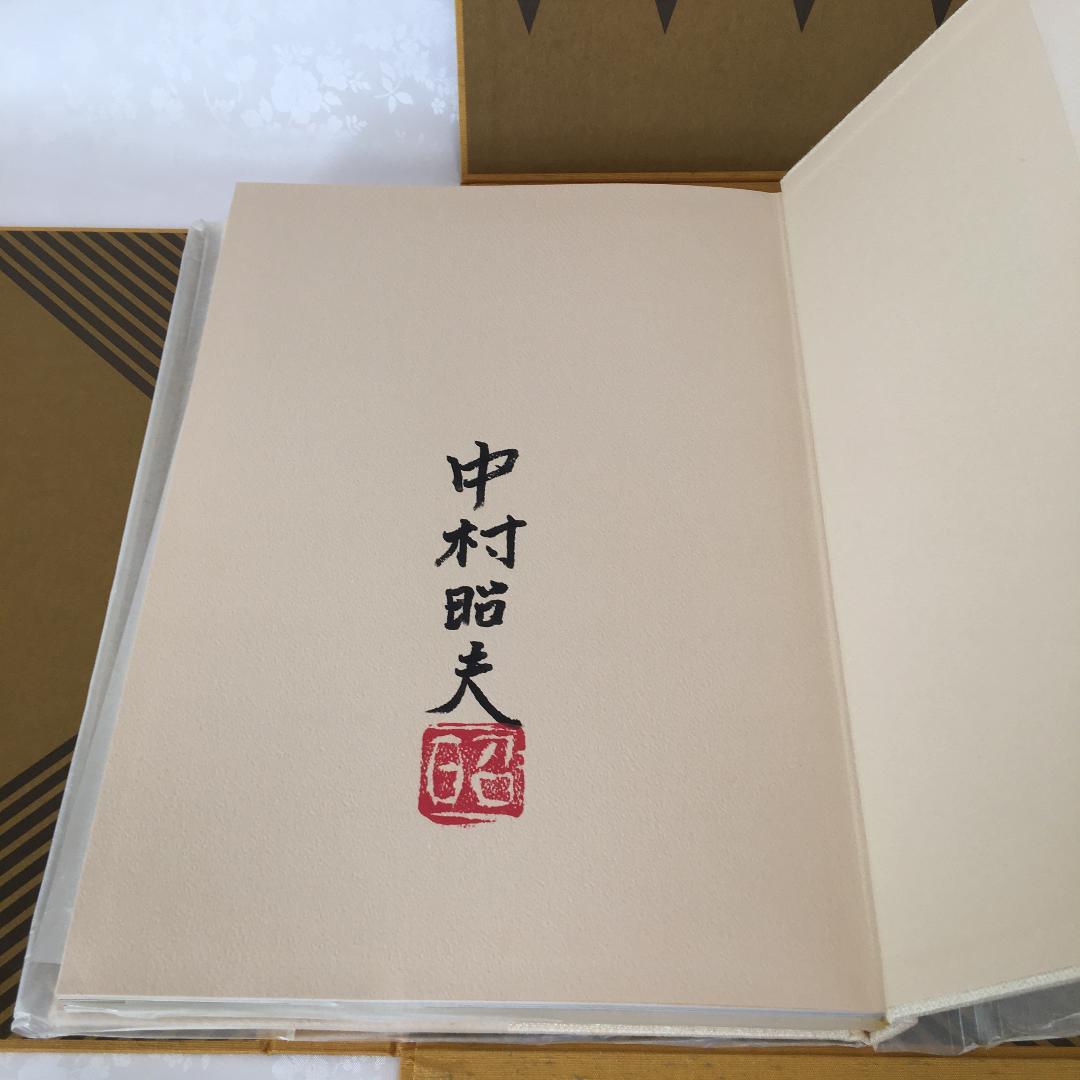 中村昭夫
昭